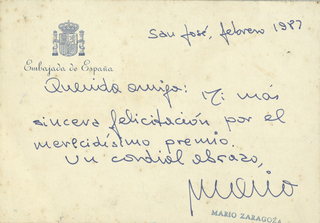 San José, febrero 1987
Embajada de España
Querida amiga: Mi más
sincera felicitación por el
merecidísimo premio.
Un cordial abrazo,
Mario
MARIO ZARAGOZA